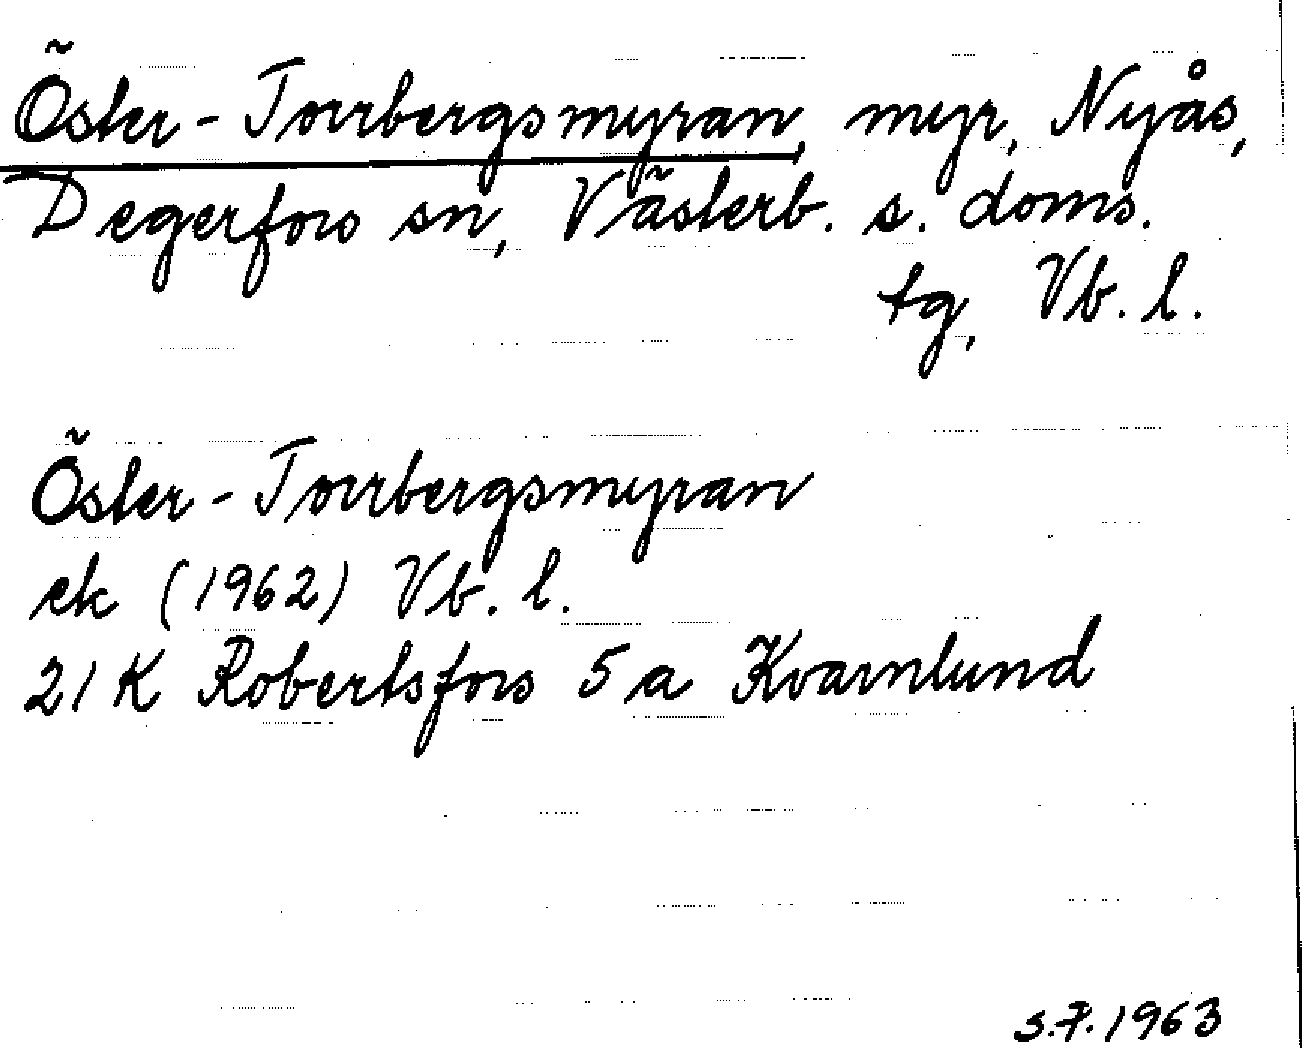 Öster-Torrbergsmyran, myr, Nyås,
Degerfors sn, Västerb. s. doms.
tg, Vb. l.
Öster-Torrbergsmyran
ek (1962) Vb. l.
21 K Robertsfors 5 a Kvarnlund
3.7.1963